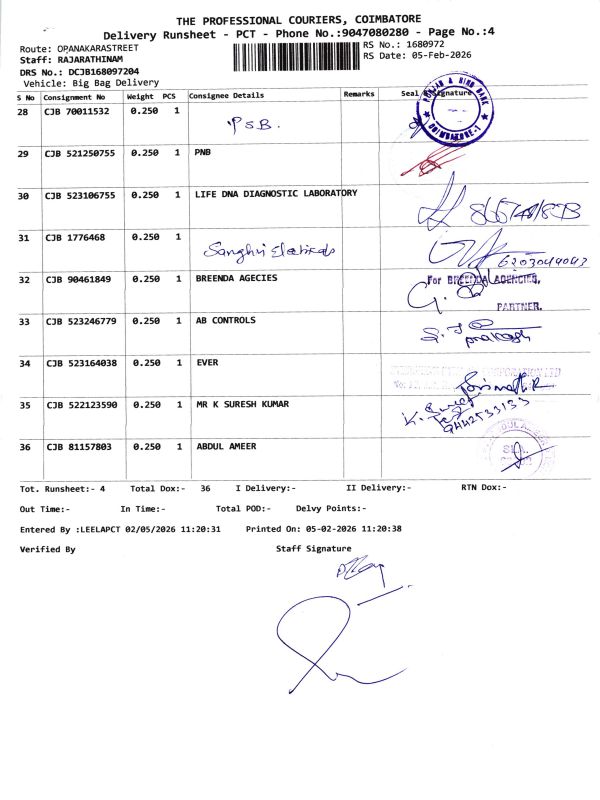 THE PROFESSIONAL COURIERS, COIMBATORE
Delivery Runsheet - PCT - Phone No.:9047080280 - Page No.:4
Route: OPANAKARASTREET RS No.: 1680972
Staff: RAJARATHINAM RS Date: 05-Feb-2026
DRS No.: DCJB168097204
Vehicle: Big Bag Delivery
S No Consignment No Weight PCS Consignee Details Remarks Seal & Signature
28 CJB 70011532 0.250 1 P.S.B.
PUNJAB & SIND BANK
COIMBATORE-1
29 CJB 521250755 0.250 1 PNB
30 CJB 523106755 0.250 1 LIFE DNA DIAGNOSTIC LABORATORY
31 CJB 1776468 0.250 1 Sanghvi Electricals
6203049043
32 CJB 90461849 0.250 1 BREENDA AGECIES
For BREENDA AGENCIES,
PARTNER.
33 CJB 523246779 0.250 1 AB CONTROLS
prakash
34 CJB 523164038 0.250 1 EVER
35 CJB 522123590 0.250 1 MR K SURESH KUMAR
9442533153
36 CJB 81157803 0.250 1 ABDUL AMEER
Tot. Runsheet:- 4 Total Dox:- 36 I Delivery:- II Delivery:- RTN Dox:-
Out Time:- In Time:- Total POD:- Delvy Points:-
Entered By :LEELAPCT 02/05/2026 11:20:31 Printed On: 05-02-2026 11:20:38
Verified By Staff Signature